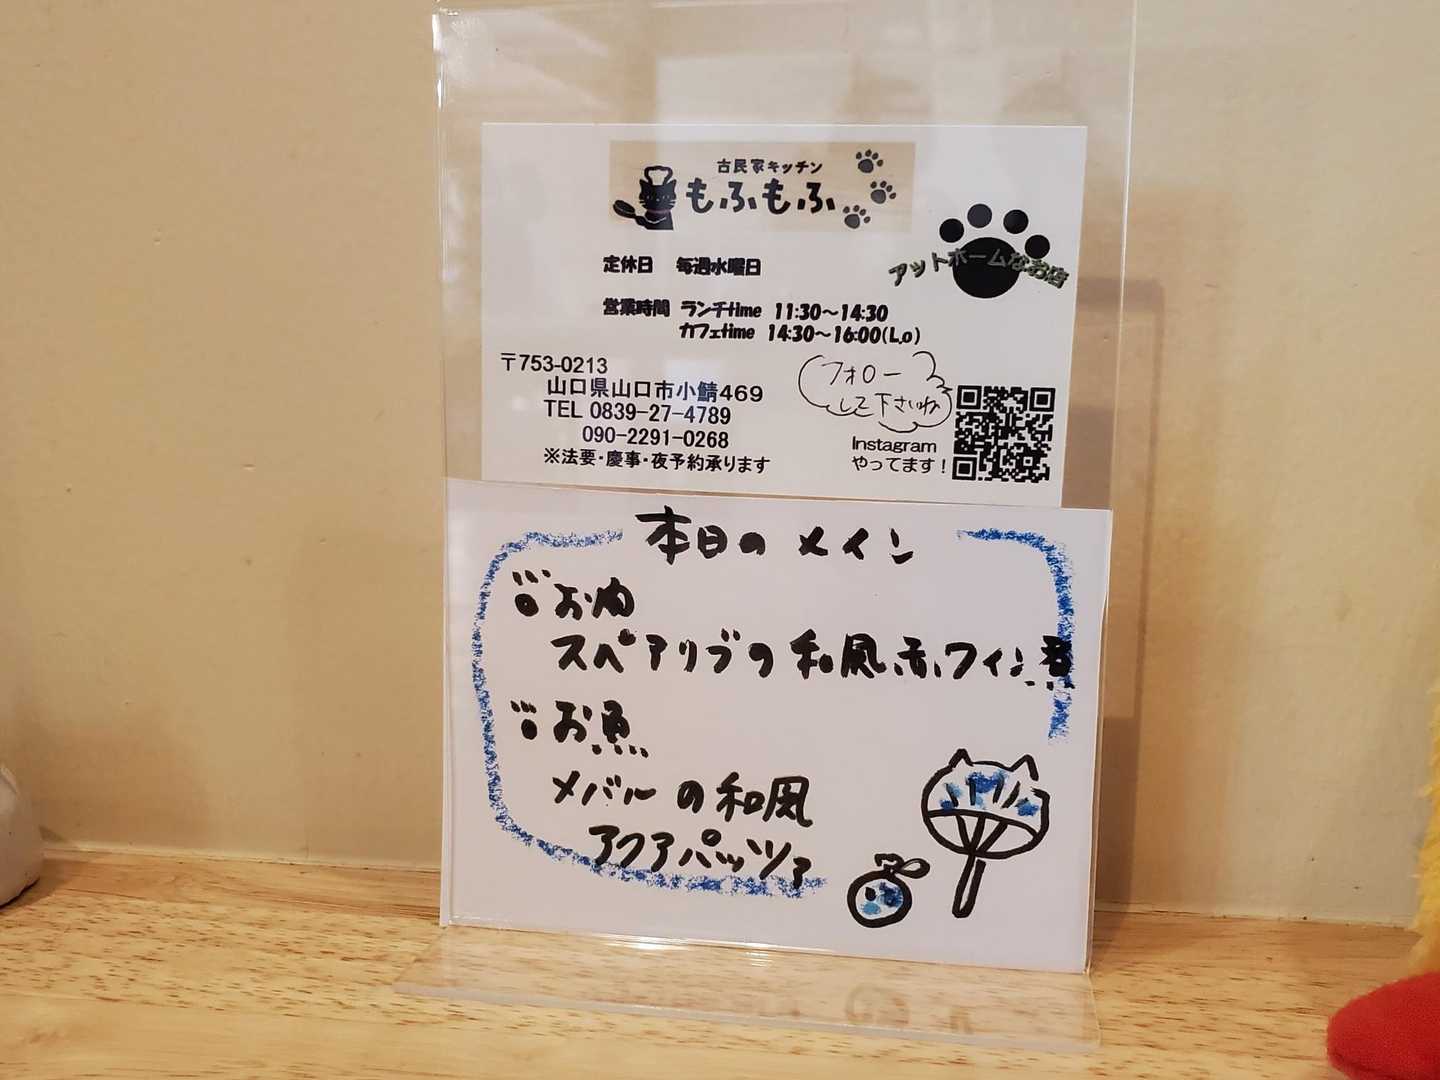 古民家キッチン
もふもふ
アットホームなお店
定休日 毎週水曜日
営業時間 ランチtime 11:30～14:30
カフェtime 14:30～16:00(L,o)
〒753-0213
山口県山口市小鯖469
TEL 0839-27-4789
090-2291-0268
※法要・慶事・夜予約承ります
フォロー
して下さいね
Instagram
やってます！
本日のメイン
お肉
スペアリブの和風赤ワイン煮
お魚
メバルの和風
アクアパッツァ